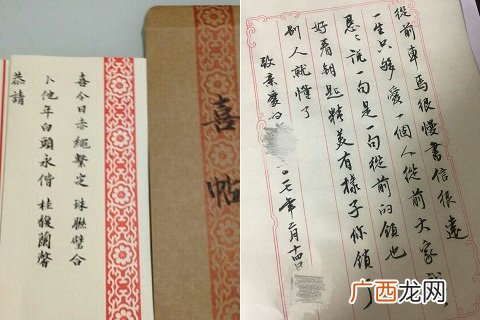 喜今日赤繩繫定 珠聯璧合
卜他年白頭永偕 桂馥蘭馨
恭請
喜帖
從前車馬很慢書信很遠
一生只夠愛一個人從前大家
懇々說一句是一句從前的鎖也
好看鑰匙精美有樣子你鎖了
別人就懂了
致亲愛的
七年二月十四日
广西龙网